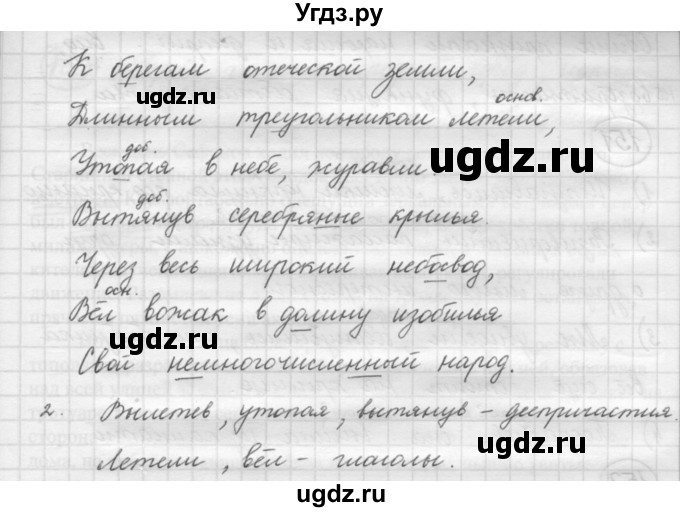 Угдз.ру
К берегам отеческой земли,
ugdz.ru
основ.
Длинным треугольником летели,
доб.
ugdz.ru
Утопая в небе, журавли.
доб.
Вытянув серебрянные крылья
Через весь широкий небосвод,
осн.
ugdz.ru
Вёл вожак в долину изобилья
Свой немногочисленный народ.
2. Вылетев, утопая, вытянув – деепричастия.
Летели, вёл – глаголы.
ugdz.ru
ugdz.ru